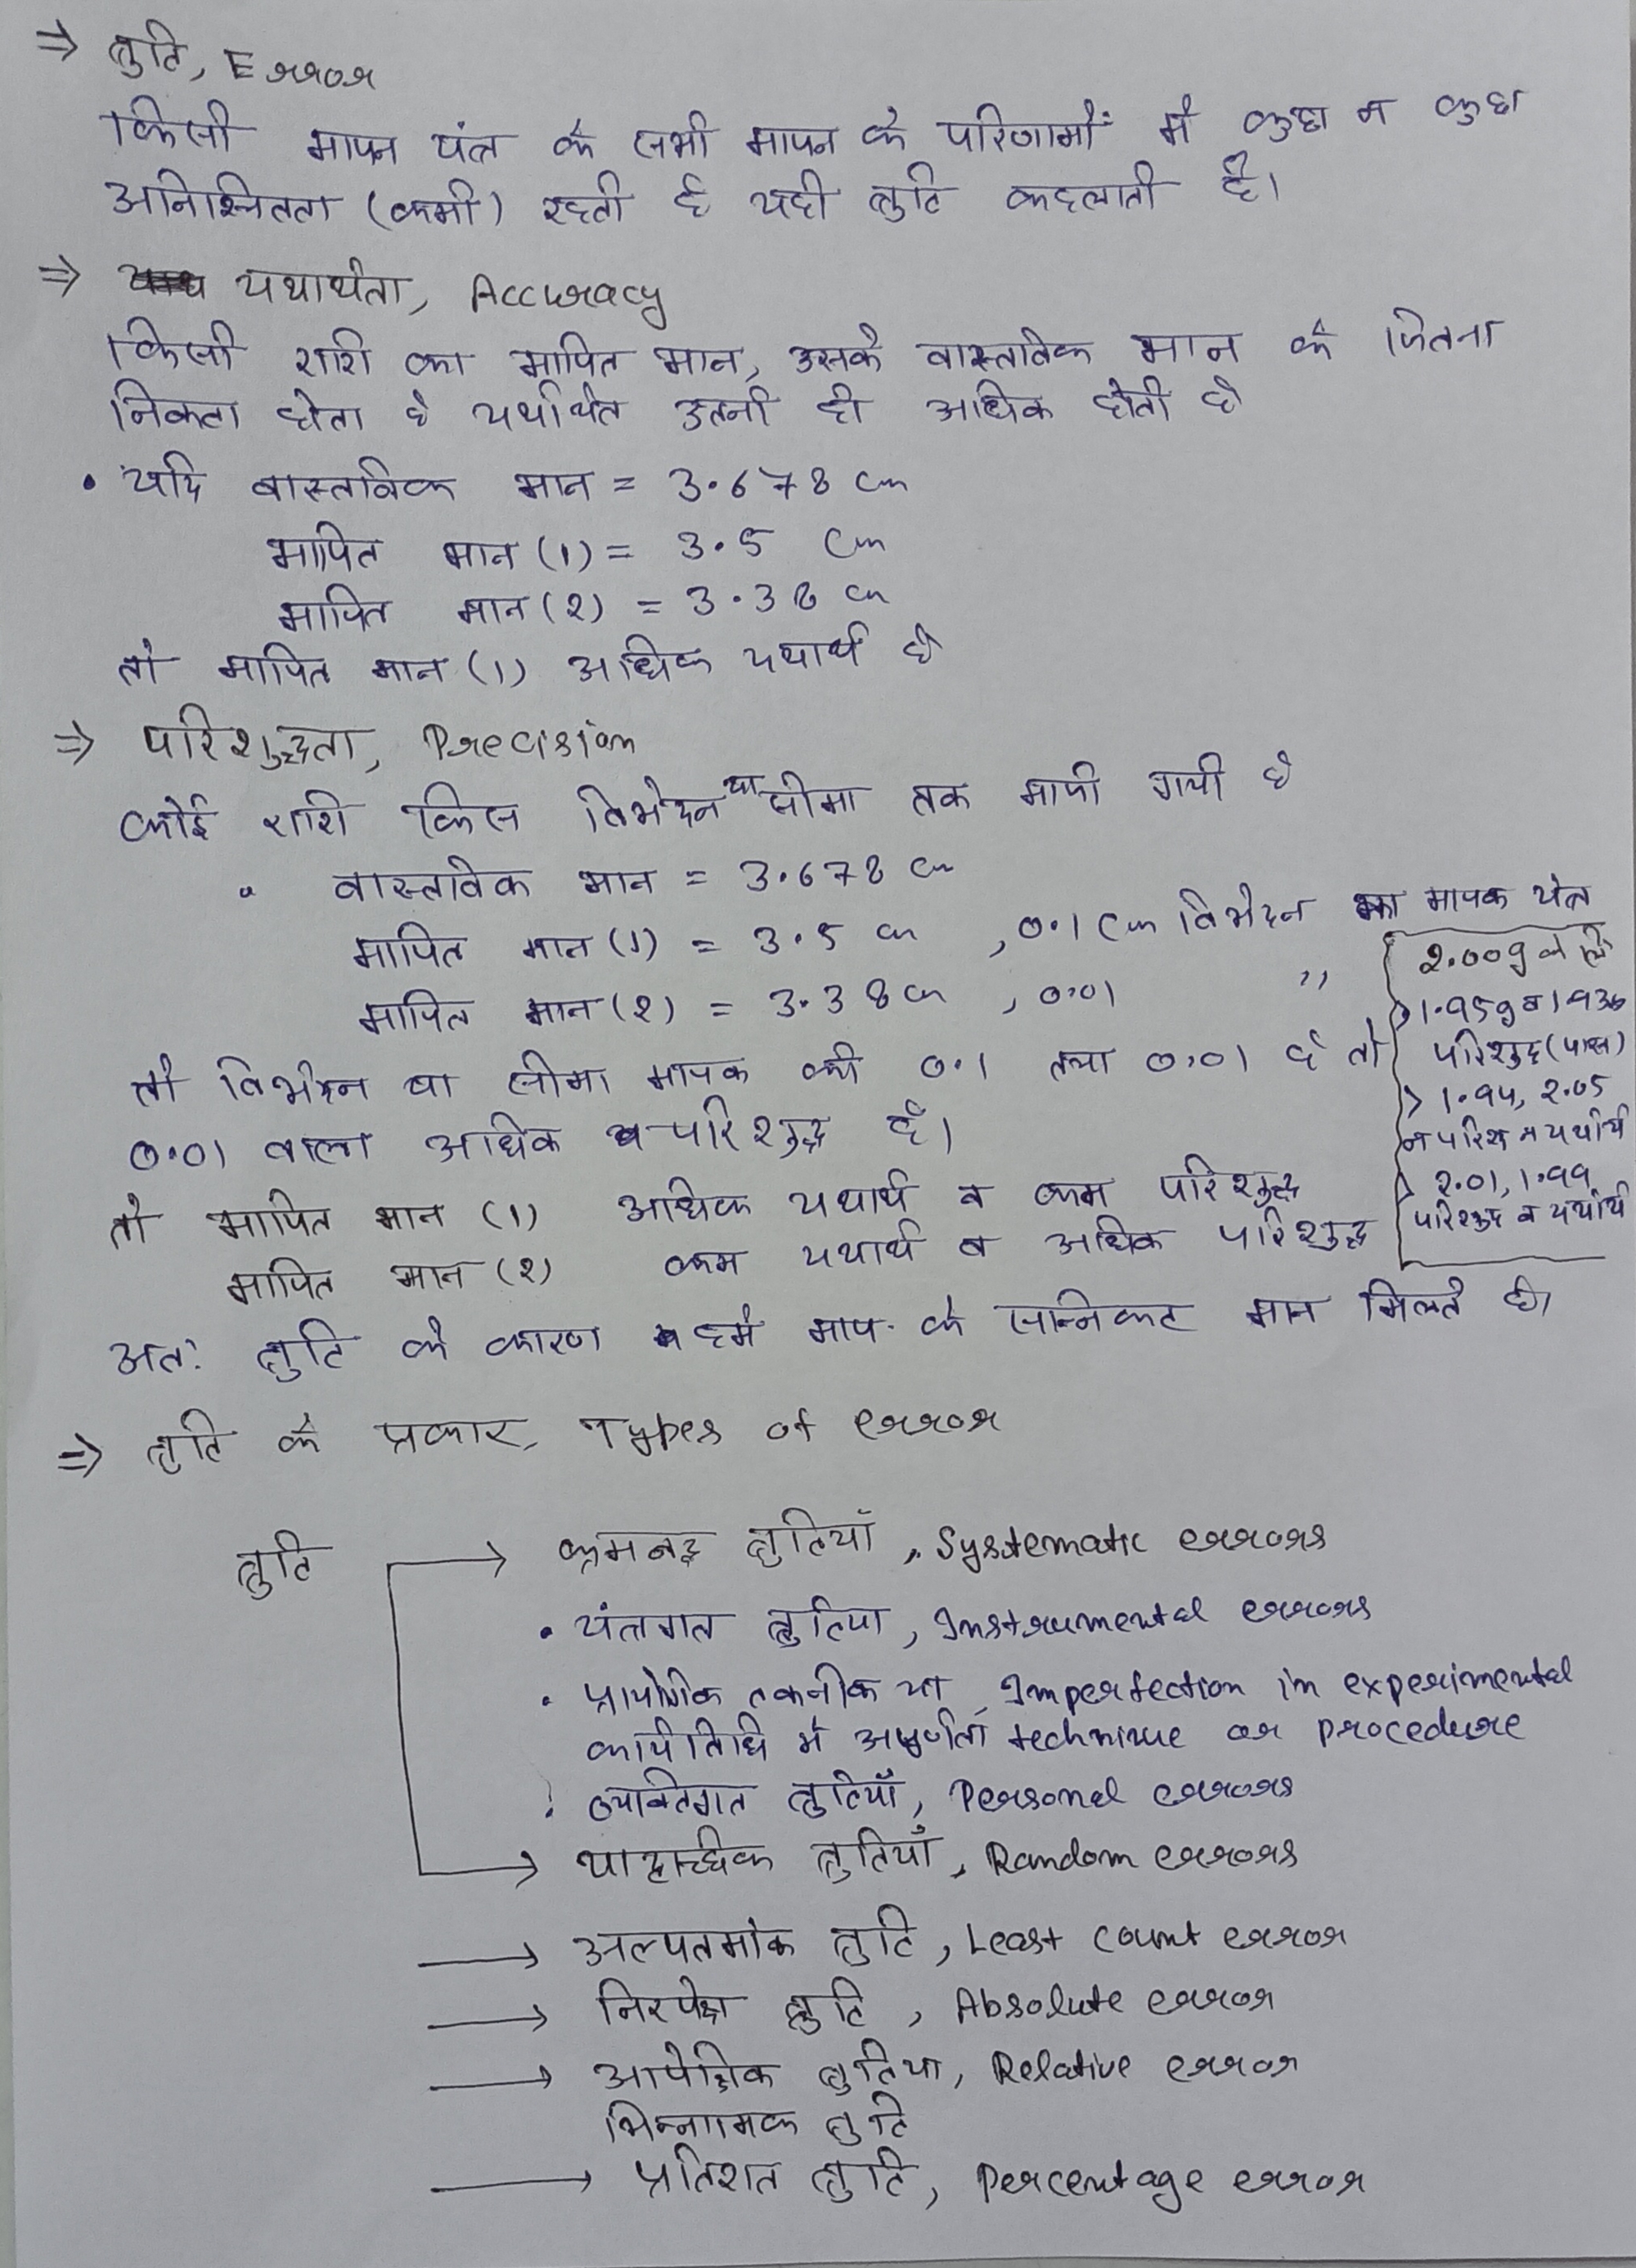 ⇒ त्रुटि, Error
किसी मापन यंत्र के सभी मापन के परिणामों में कुछ न कुछ
अनिश्चितता (कमी) रहती है यही त्रुटि कहलाती है।
⇒ यथार्थता, Accuracy
किसी राशि का मापित मान, उसके वास्तविक मान के जितना
निकट होता है यर्थाथत उतनी ही अधिक होती है
• यदि वास्तविक मान = 3.678 cm
मापित मान (1) = 3.5 cm
मापित मान (2) = 3.38 cm
तो मापित मान (1) अधिक यथार्थ है
⇒ परिशुद्धता, Precision
कोई राशि किस विभेदन या सीमा तक मापी गयी है
• वास्तविक मान = 3.678 cm
मापित मान (1) = 3.5 cm , 0.1 cm विभेदन का मापक यंत्र
मापित मान (2) = 3.38 cm , 0.01 "
तो विभेदन या सीमा मापक की 0.1 तथा 0.01 है तो
0.01 वाला अधिक परिशुद्ध है।
तो मापित मान (1) अधिक यथार्थ व कम परिशुद्ध
मापित मान (2) कम यथार्थ व अधिक परिशुद्ध
2.00g के लिए
> 1.95g व 1.93g
परिशुद्ध (पास)
> 1.94, 2.05
न परिशु न यर्थाथ
> 2.01, 1.99
परिशुद्ध व यर्थाथ
अतः त्रुटि के कारण हमे माप के सन्निकट मान मिलते है।
⇒ त्रुटि के प्रकार, Types of error
त्रुटि → क्रमबद्ध त्रुटियाँ, Systematic errors
• यंत्रगत त्रुटिया, Instrumental errors
• प्रायोगिक तकनीक या, Imperfection in experimental
कार्यविधि में अपूर्णता technique or procedure
• व्यक्तिगत त्रुटियाँ, Personal errors
→ यादृच्छिक त्रुटियाँ, Random errors
→ अल्पतमांक त्रुटि, Least count error
→ निरपेक्ष त्रुटि, Absolute error
→ आपेक्षिक त्रुटिया, Relative error
भिन्नात्मक त्रुटि
→ प्रतिशत त्रुटि, Percentage error